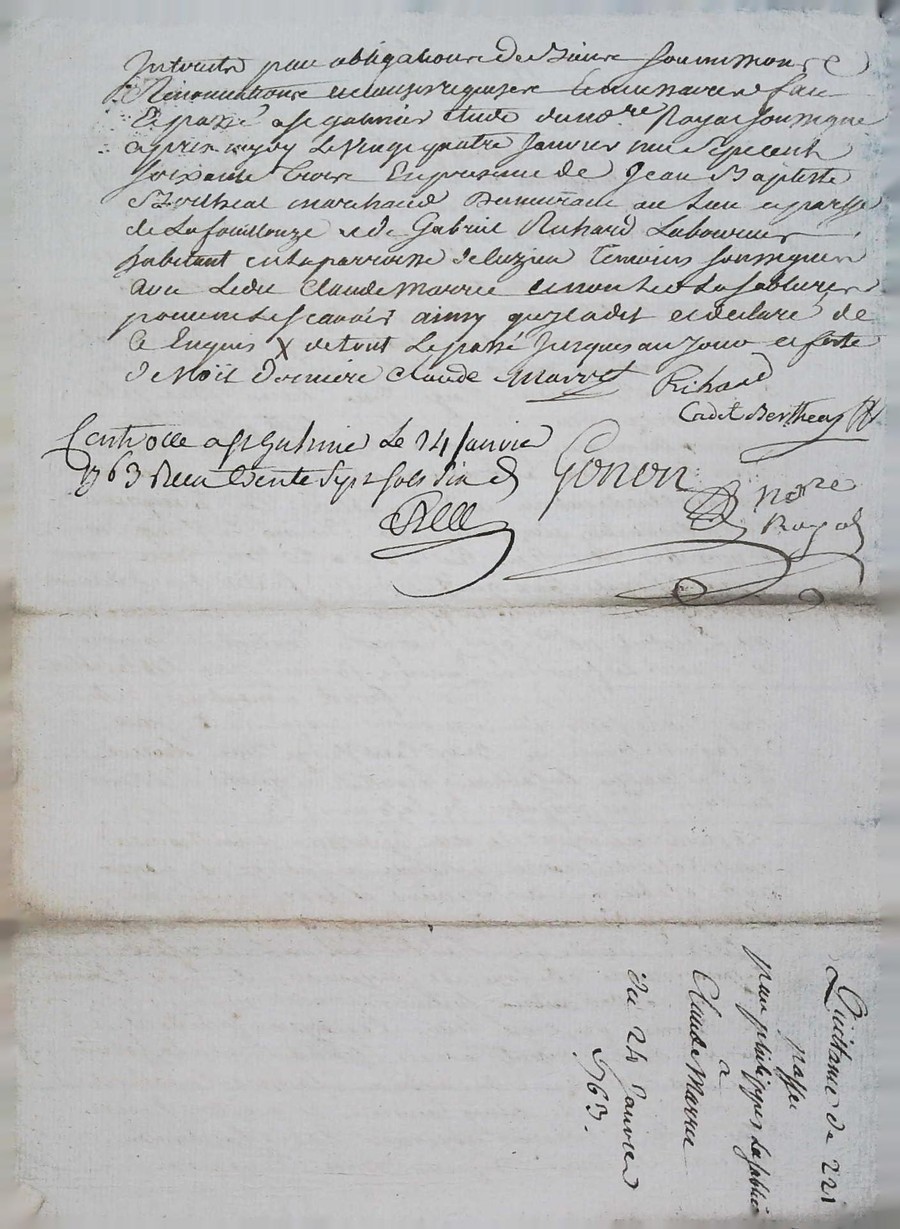 par obligations de biens soumission
Renonciations clauses requises fait
et passé a St galmier étude du no.re Royal soussigné
après midy Le vingt quatre Janvier mil sept cent
soixante trois En presence de Jean Baptiste
Berthéas marchand Demeurant au Lieu et parsse
de Lafouillouze et de Gabriel Richard Laboureur
habitant en la parroisse de Luzieu Temoins soussignés
avec Ledit Claude Marret et non Led Lasabliere
pour ne Le scavoir ainsy qu'il a dit et déclaré de
ce Enquis X de tout Le passé Jusques au Jour et feste
de Noel Derniere Claude Marret Richard
Cadet Bertheas
Controllé a St Galmier Le 24 Janvier
1763 Recu trente sept sols six d Gonon
notre
Royal
Quittance de 221
passée
par philippes Lasablie
a
Claude Marret
du 24 Janvier
1763.